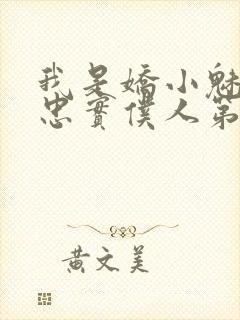 我是嬌小魅
忠實僕人第
黃文美